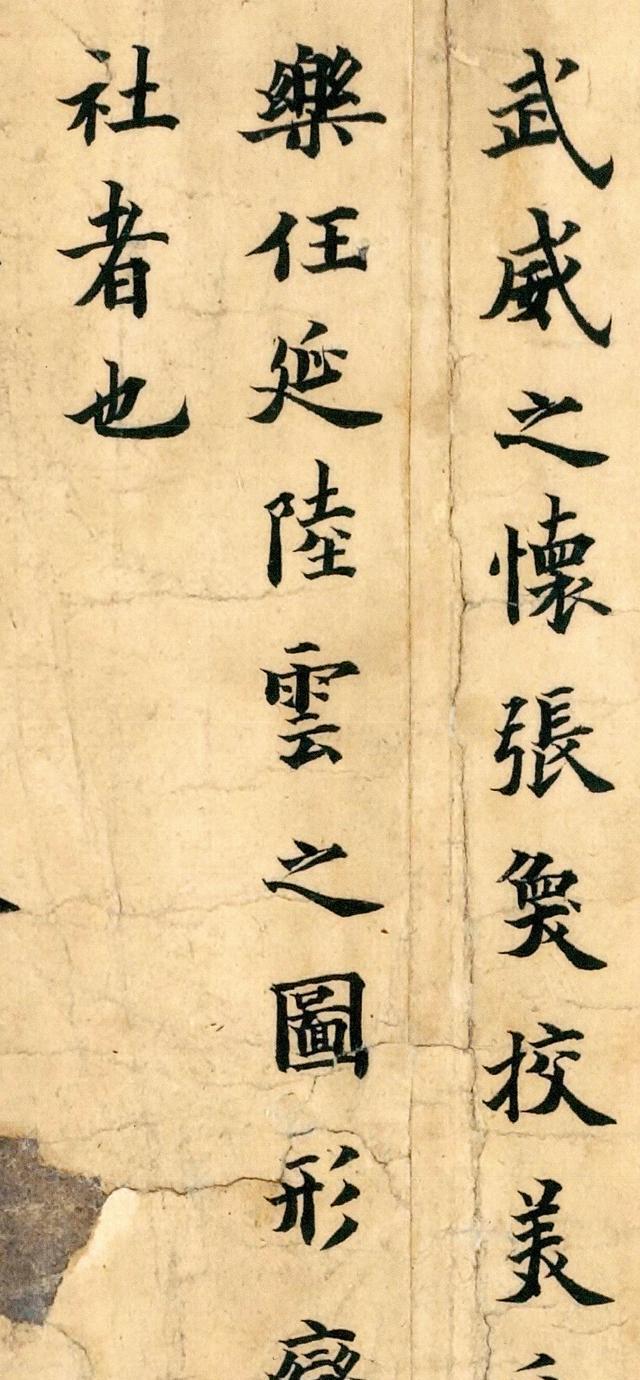 武威之懷張奐挍美
樂任延陸雲之圖形
社者也